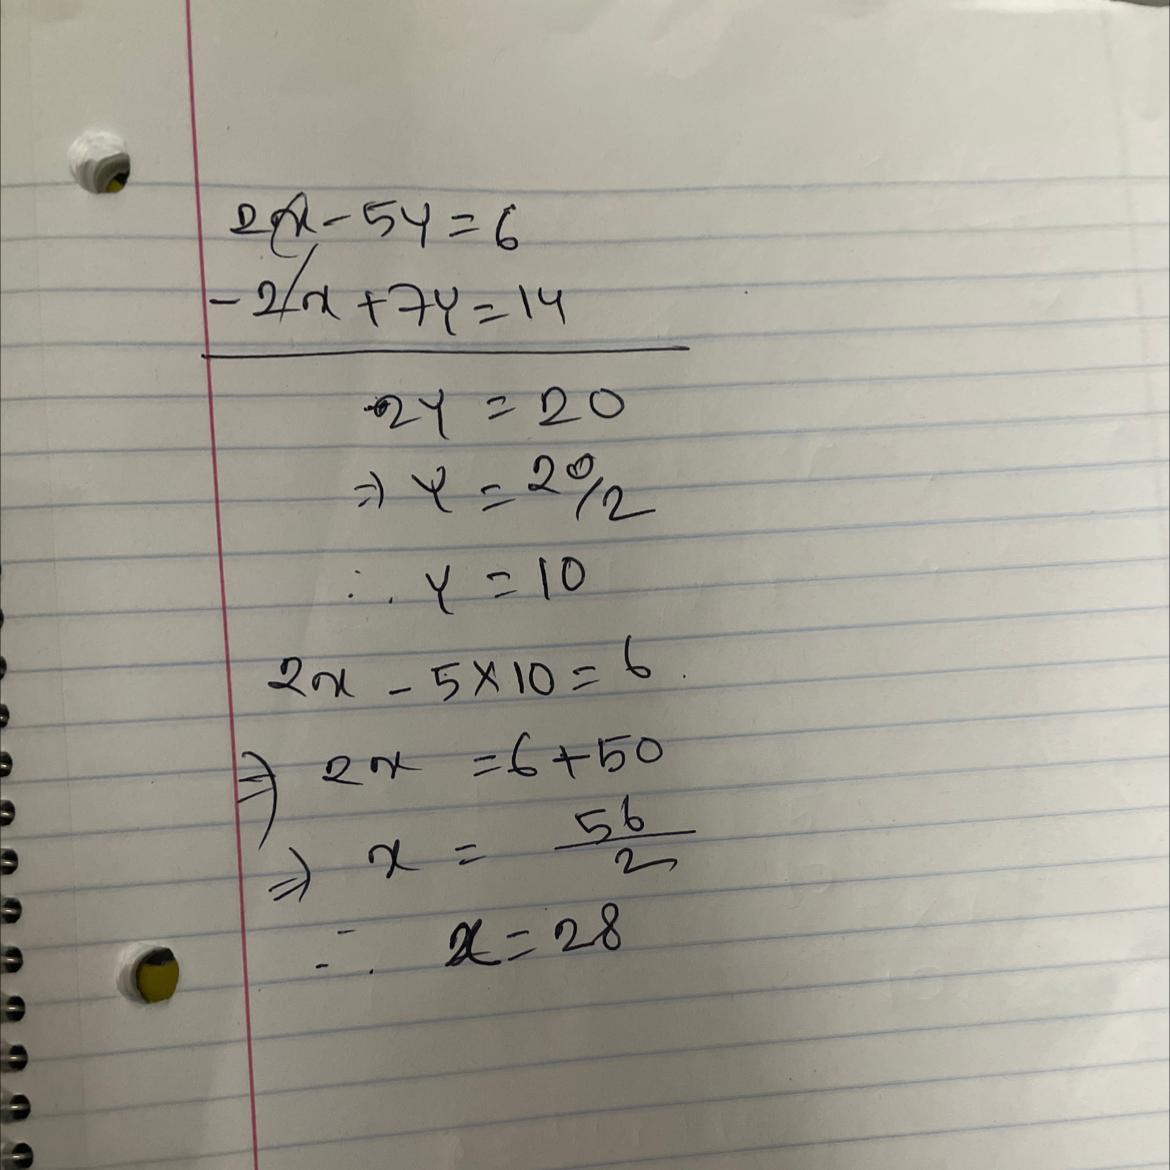 2x - 5y = 6
- 2x + 7y = 14
2y = 20
⇒ y = 20/2
∴ y = 10
2x - 5 × 10 = 6
⇒ 2x = 6 + 50
⇒ x = 56/2
∴ x = 28